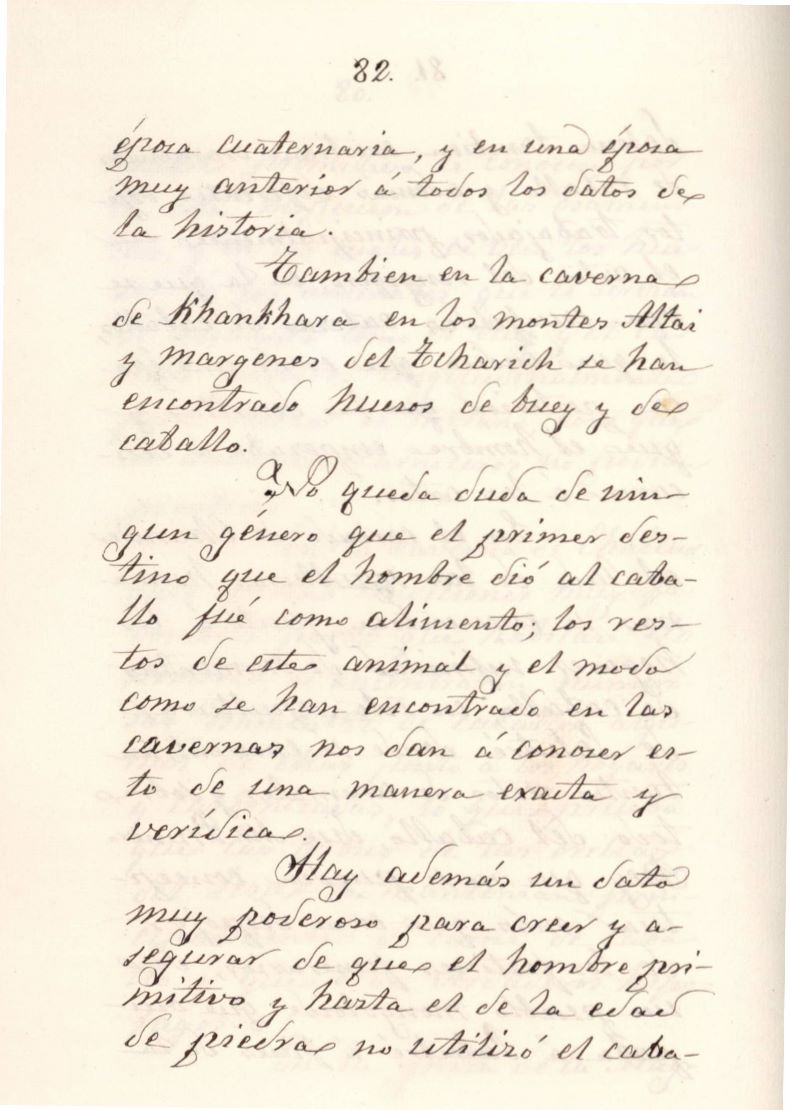 82.
época cuaternaria, y en una época
muy anterior á todos los datos de
la historia.
Tambien en la caverna
de Khankhara en los montes Altai
y margenes del Tcharich se han
encontrado huesos de buey y de
caballo.
No queda duda de nin-
gun género que el primer des-
tino que el hombre dió al caba-
llo fué como alimento; los res-
tos de este animal y el modo
como se han encontrado en las
cavernas nos dan á conocer es-
to de una manera exacta y
verídica.
Hay además un dato
muy poderoso para creer y a-
segurar de que el hombre pri-
mitivo y hasta el de la edad
de piedra no utilizó el caba-